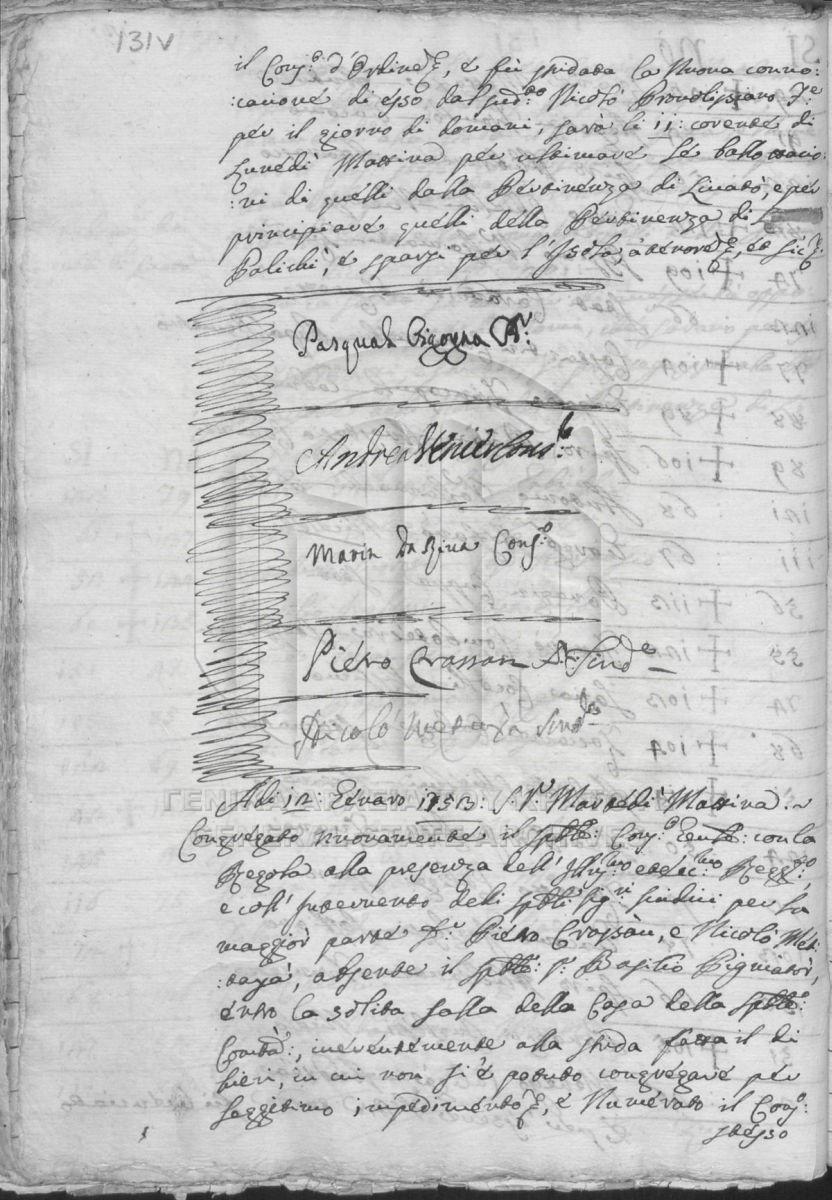 131v
il Cons:º d'Ordine, e fù stridada la Nuova convo:
:catione di esso dal sud:to Nicolò
per il giorno di domani, sarà li 11: corente di
Lunedì Mattina per ultimare le ballottatio:
:ni di quelli dalla Pertinenza di Livatò, e per
principiare quelli della Pertinenza di
Palichi, e sparzi per l'Isola,
Pasqual Cigogna Pr:
Andrea Venier Cons:r
Marin da Riva Cons:º
Piètro Crassan Sind:e
Nicolò Metaxà Sind:co
Adi 12: Genaro 1753: S.V. Martedì Mattina.
Congregato nuovamente il Sptte: Cons:º con la
Regola alla presenza dell' Illmo Regg:to
e coll' Intervento deli Sptti Sig:ri Sindici per la
maggior parte Sr: Piètro Crassàn, e Nicolò Met:
:taxà, absente il Sptte: Sr: Basilio Pigniator,
entro la solita Salla della Casa della Sptte:
Comtà:, inerentemente alla strida fatta il di
hieri, in cui non si è potuto congregare per
leggitimo impedimento, e Numerato il Cons:º
stesso